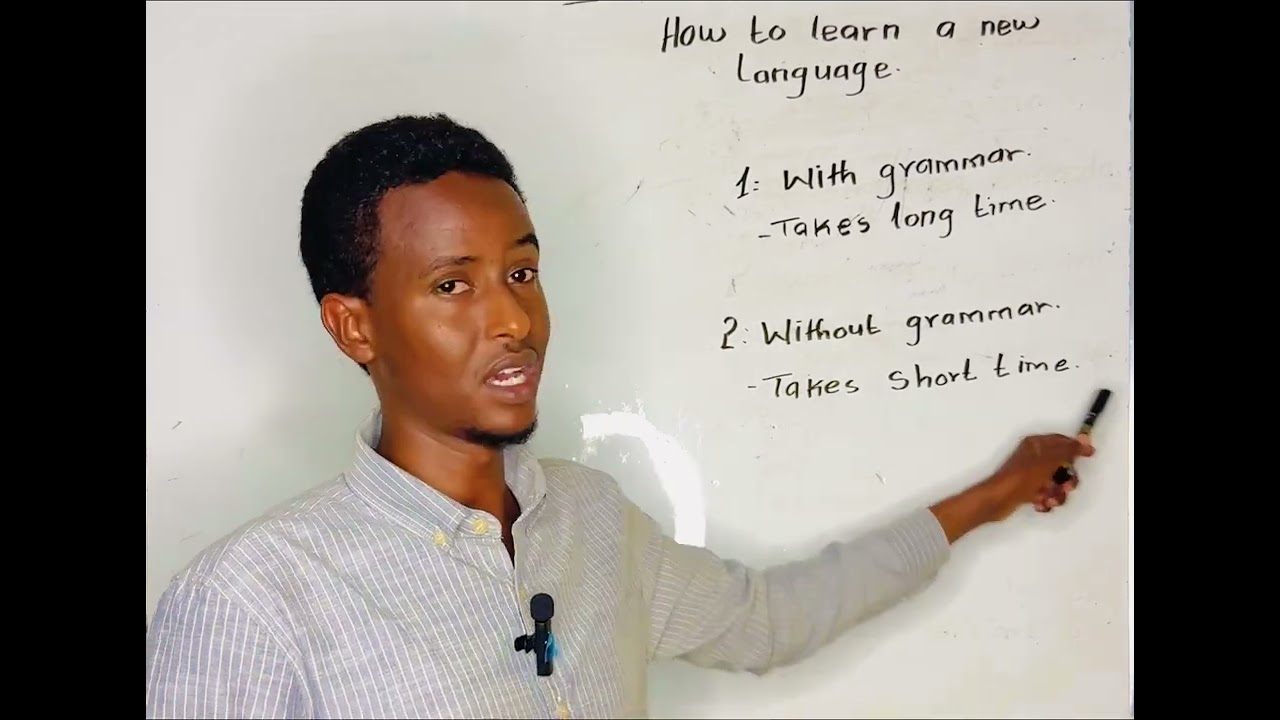 How to learn a new
Language.
1: With grammar.
-Takes long time.
2: Without grammar.
-Takes short time.